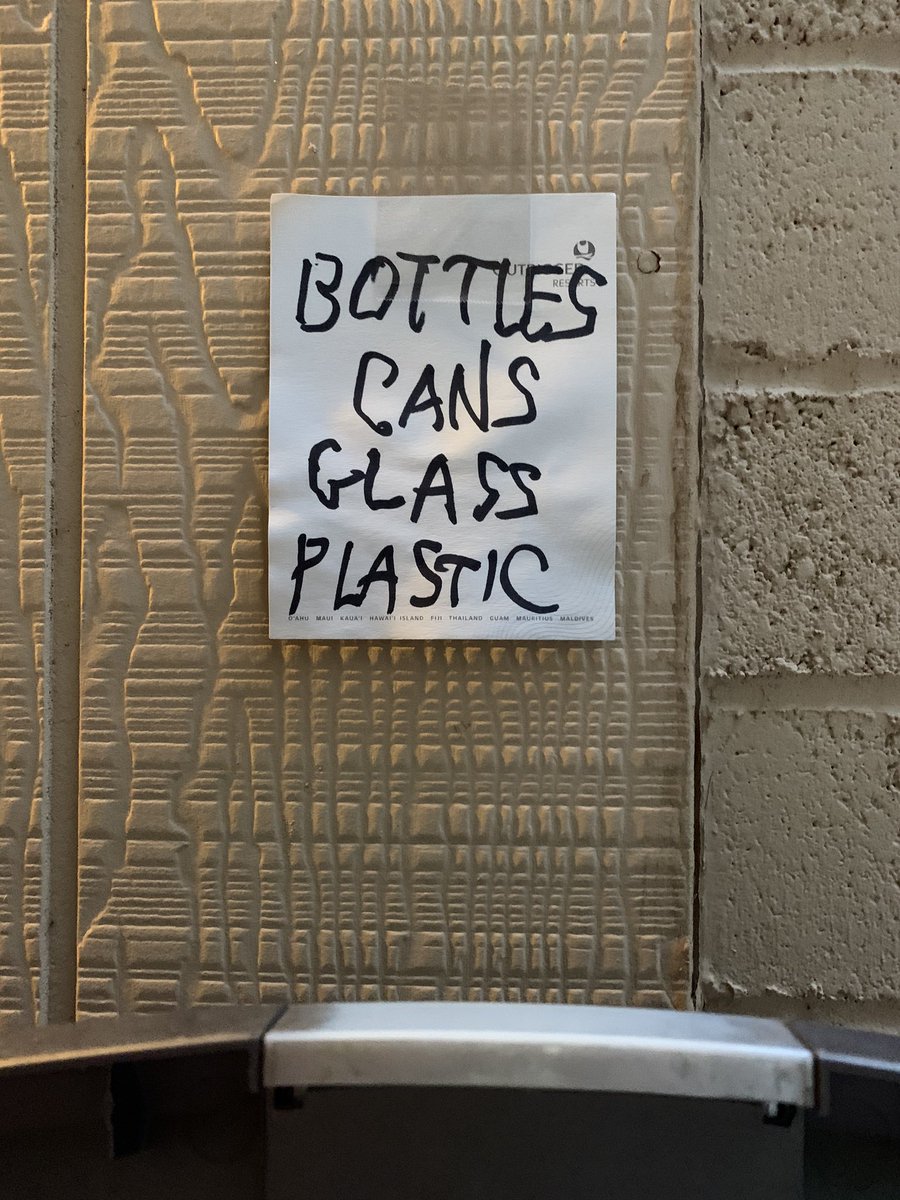 OUTRIGGER
RESORTS
BOTTLES
CANS
GLASS
PLASTIC
O'AHU MAUI KAUA'I HAWAI'I ISLAND FIJI THAILAND GUAM MAURITIUS MALDIVES